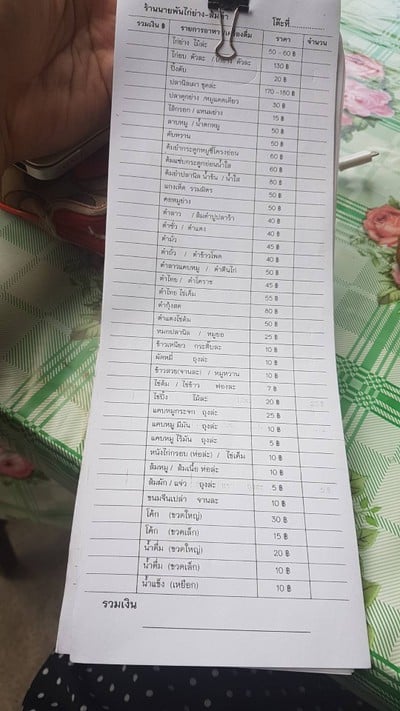 ร้านนายพันไก่ย่าง-ส้มตำ โต๊ะที่
รวมเงิน ฿ รายการอาหาร/เครื่องดื่ม ราคา จำนวน
ไก่ย่าง ไม้ละ 50 - 60 ฿
ไก่อบ ตัวละ / ไก่ย่าง ตัวละ 130 ฿
ปิ้งตับ 20 ฿
ปลานิลเผา ชุดละ 170 -180 ฿
ปลาดุกย่าง /หมูแดดเดียว 30 ฿
ไส้กรอก / แหนมย่าง 15 ฿
ลาบหมู / น้ำตกหมู 50 ฿
ตับหวาน 50 ฿
ต้มยำกระดูกหมูซี่โครงอ่อน 60 ฿
ต้มแซ่บกระดูกอ่อนน้ำใส 60 ฿
ต้มยำปลานิล น้ำข้น / น้ำใส 80 ฿
แกงเห็ด รวมมิตร 50 ฿
คอหมูย่าง 50 ฿
ตำลาว / ส้มตำปูปลาร้า 40 ฿
ตำซั่ว / ตำแตง 40 ฿
ตำมั่ว 45 ฿
ตำถั่ว / ตำข้าวโพด 40 ฿
ตำลาวแคบหมู / ตำตีนไก่ 50 ฿
ตำไทย / ตำโคราช 45 ฿
ตำไทย ไข่เค็ม 55 ฿
ตำกุ้งสด 80 ฿
ตำแตงไข่ต้ม 50 ฿
หมกปลานิล / หมูยอ 25 ฿
ข้าวเหนียว กระติ๊บละ 10 ฿
ผัดหมี่ ถุงละ 10 ฿
ข้าวสวย(จานละ) / หมูหวาน 10 ฿
ไข่ต้ม / ไข่ข้าว ฟองละ 7 ฿
ไข่ปิ้ง ไม้ละ 20 ฿
แคบหมูกระจก ถุงละ 25 ฿
แคบหมู มีมัน ถุงละ 10 ฿
แคบหมู ไร้มัน ถุงละ 5 ฿
หนังไก่กรอบ (ห่อละ) / ไข่เค็ม 10 ฿
ส้มหมู / ส้มเนื้อ ห่อละ 10 ฿
ส้มผัก / แจ่ว ถุงละ 5 ฿
ขนมจีนเปล่า จานละ 10 ฿
โค้ก (ขวดใหญ่) 30 ฿
โค้ก (ขวดเล็ก) 15 ฿
น้ำดื่ม (ขวดใหญ่) 20 ฿
น้ำดื่ม (ขวดเล็ก) 10 ฿
น้ำแข็ง (เหยือก) 10 ฿
รวมเงิน